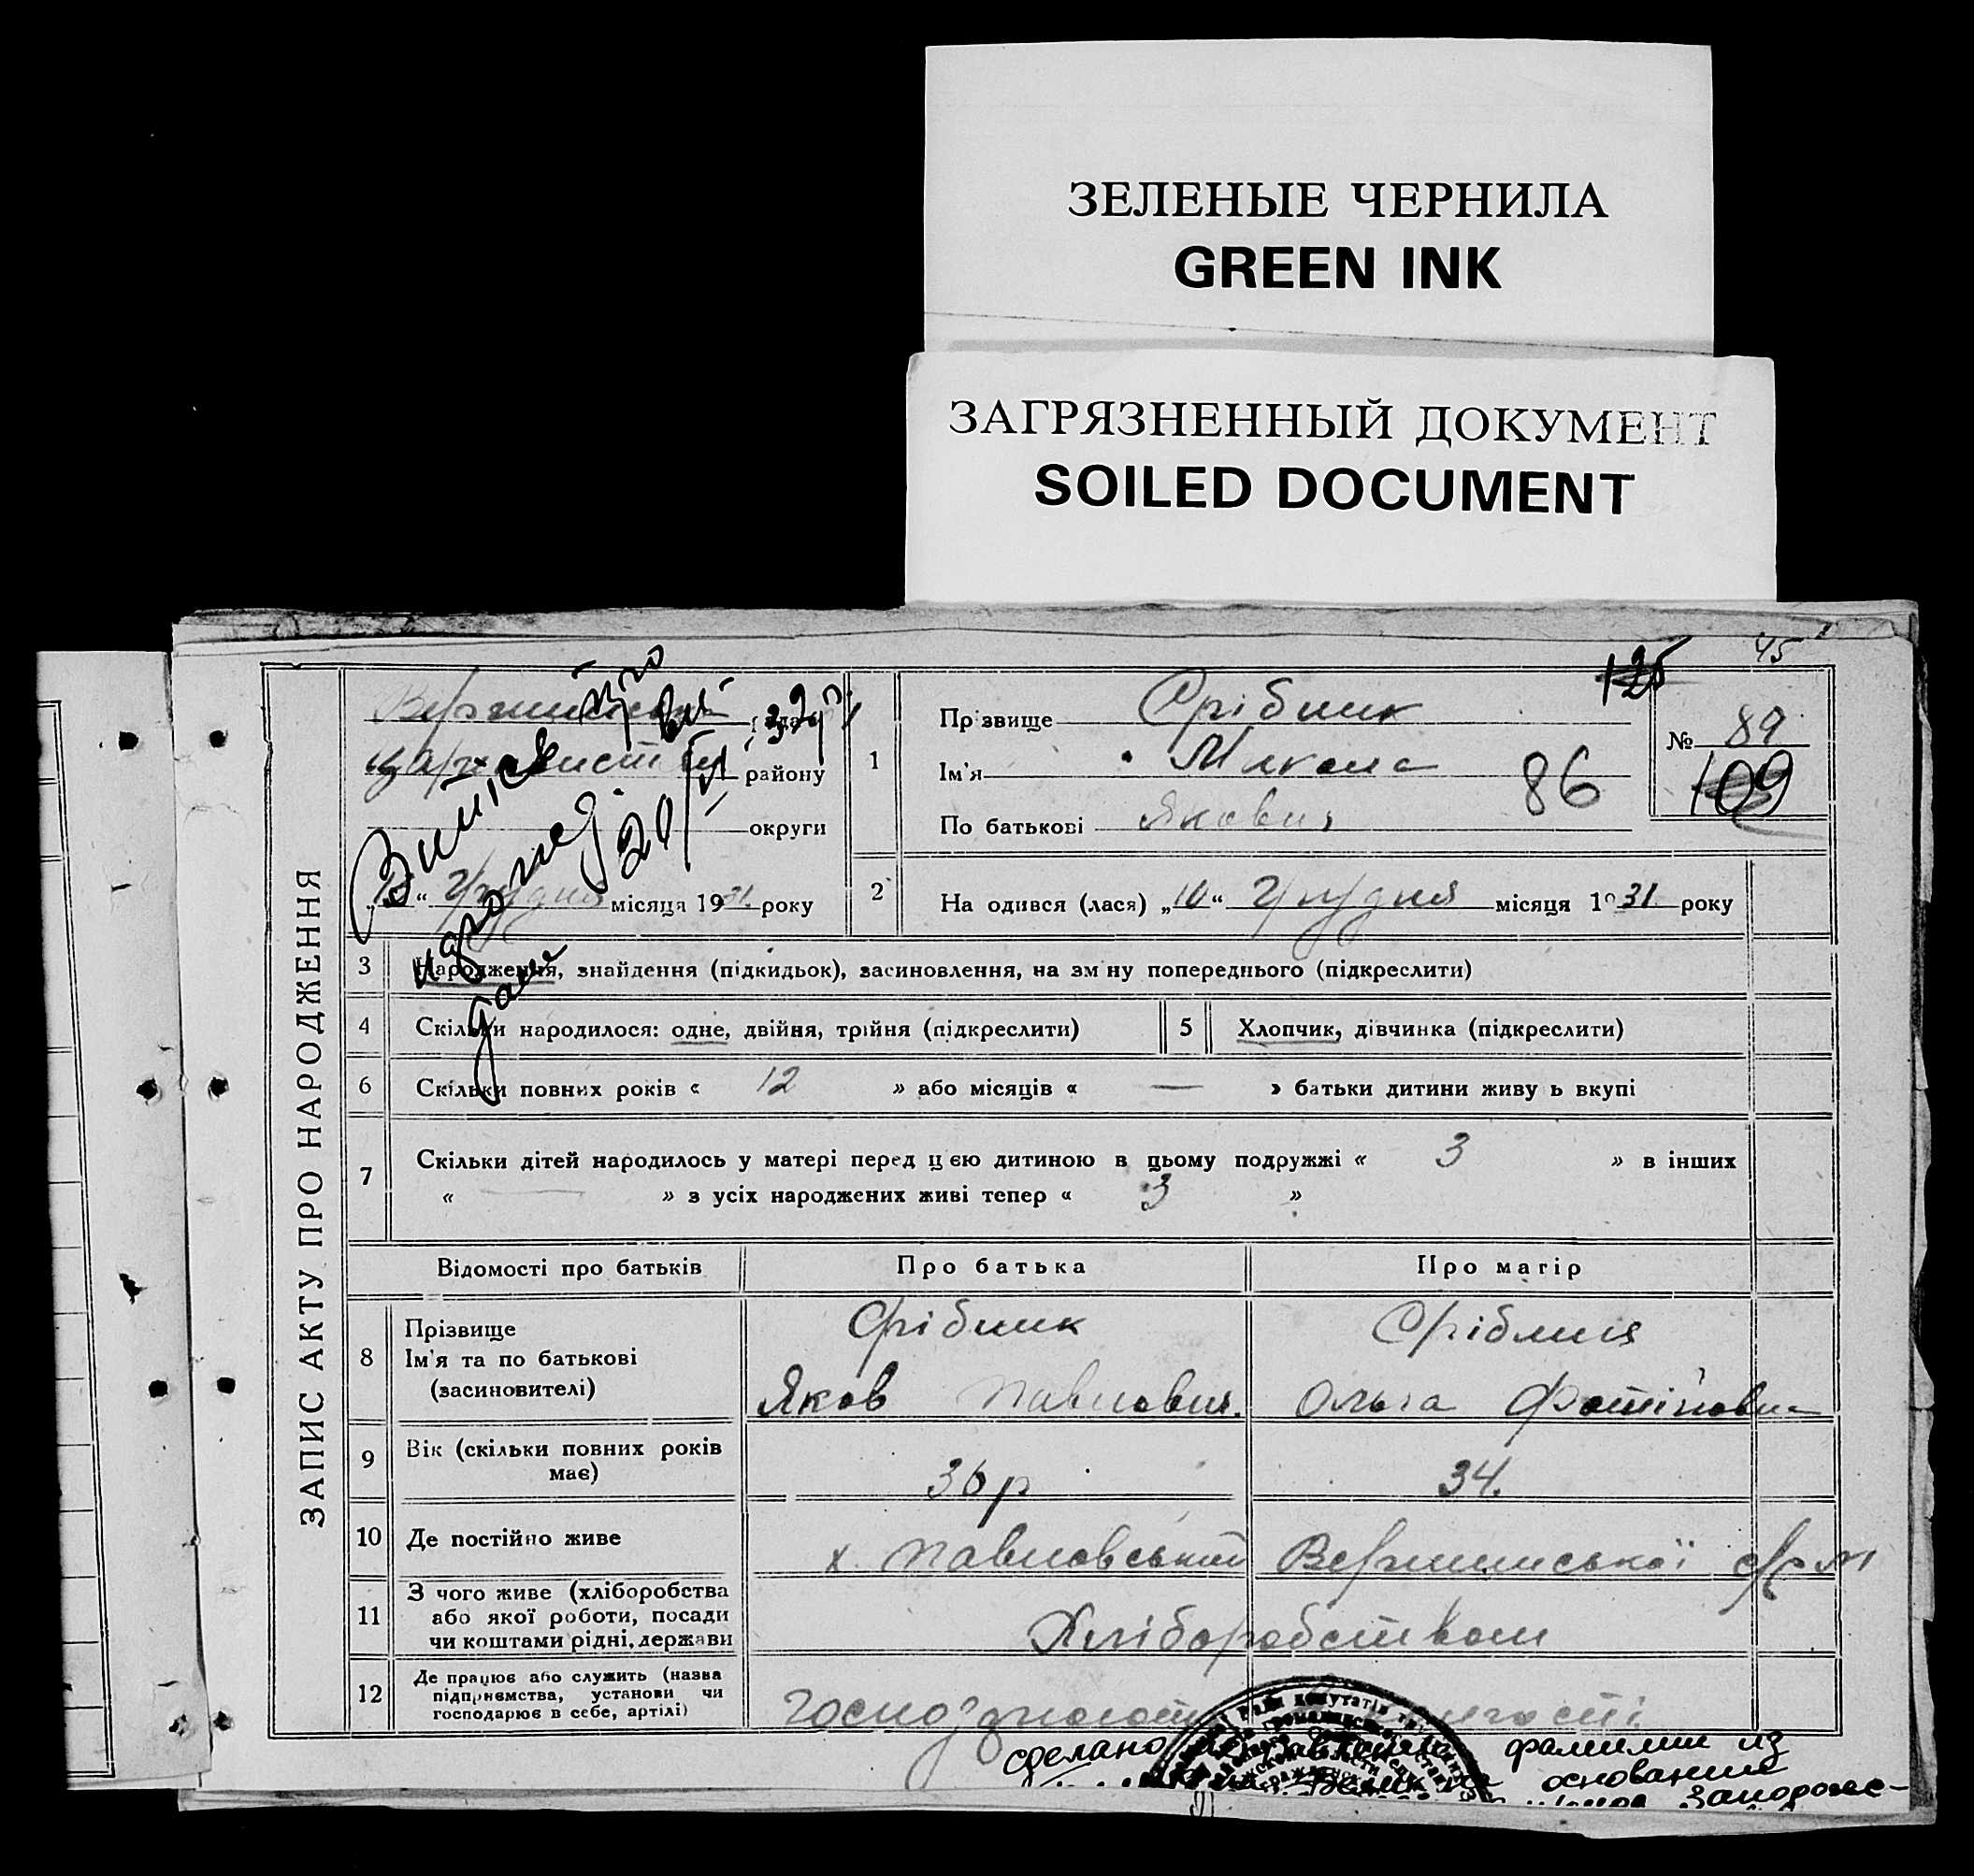 ЗЕЛЕНЫЕ ЧЕРНИЛА
GREEN INK
ЗАГРЯЗНЕННЫЙ ДОКУМЕНТ
SOILED DOCUMENT
125 45
ЗАПИС АКТУ ПРО НАРОДЖЕННЯ
району
округи
Грудня місяця 1931 року
1
Пр звище Срібник
Ім'я Микола
По батькові Якович
86
№ 89
109
2 На одився (лася) „10“ Грудня місяця 1931 року
3 Народження, знайдення (підкидьок), засиновлення, на зм ну попереднього (підкреслити)
4 Скільки народилося: одне, двійня, трійня (підкреслити) 5 Хлопчик, дівчинка (підкреслити)
6 Скільки повних років « 12 » або місяців « — » батьки дитини живу ь вкупі
7 Скільки дітей народилось у матері перед ц єю дитиною в цьому подружжі « 3 » в інших
« — » з усіх народжених живі тепер « 3 »
Відомості про батьків Про батька Про матір
8 Прізвище
Ім'я та по батькові
(засиновителі)
Срібник
Яков Павлович.
Ольга
9 Вік (скільки повних років має) 36 р 34.
10 Де постійно живе х. Павловський
11 З чого живе (хліборобства
або якої роботи, посади
чи коштами рідні, держави
Хліборобством
12 Де працює або служить (назва
підприємства, установи чи
господарює в себе, артілі)
сделано фамилии из
основании
Запорож-